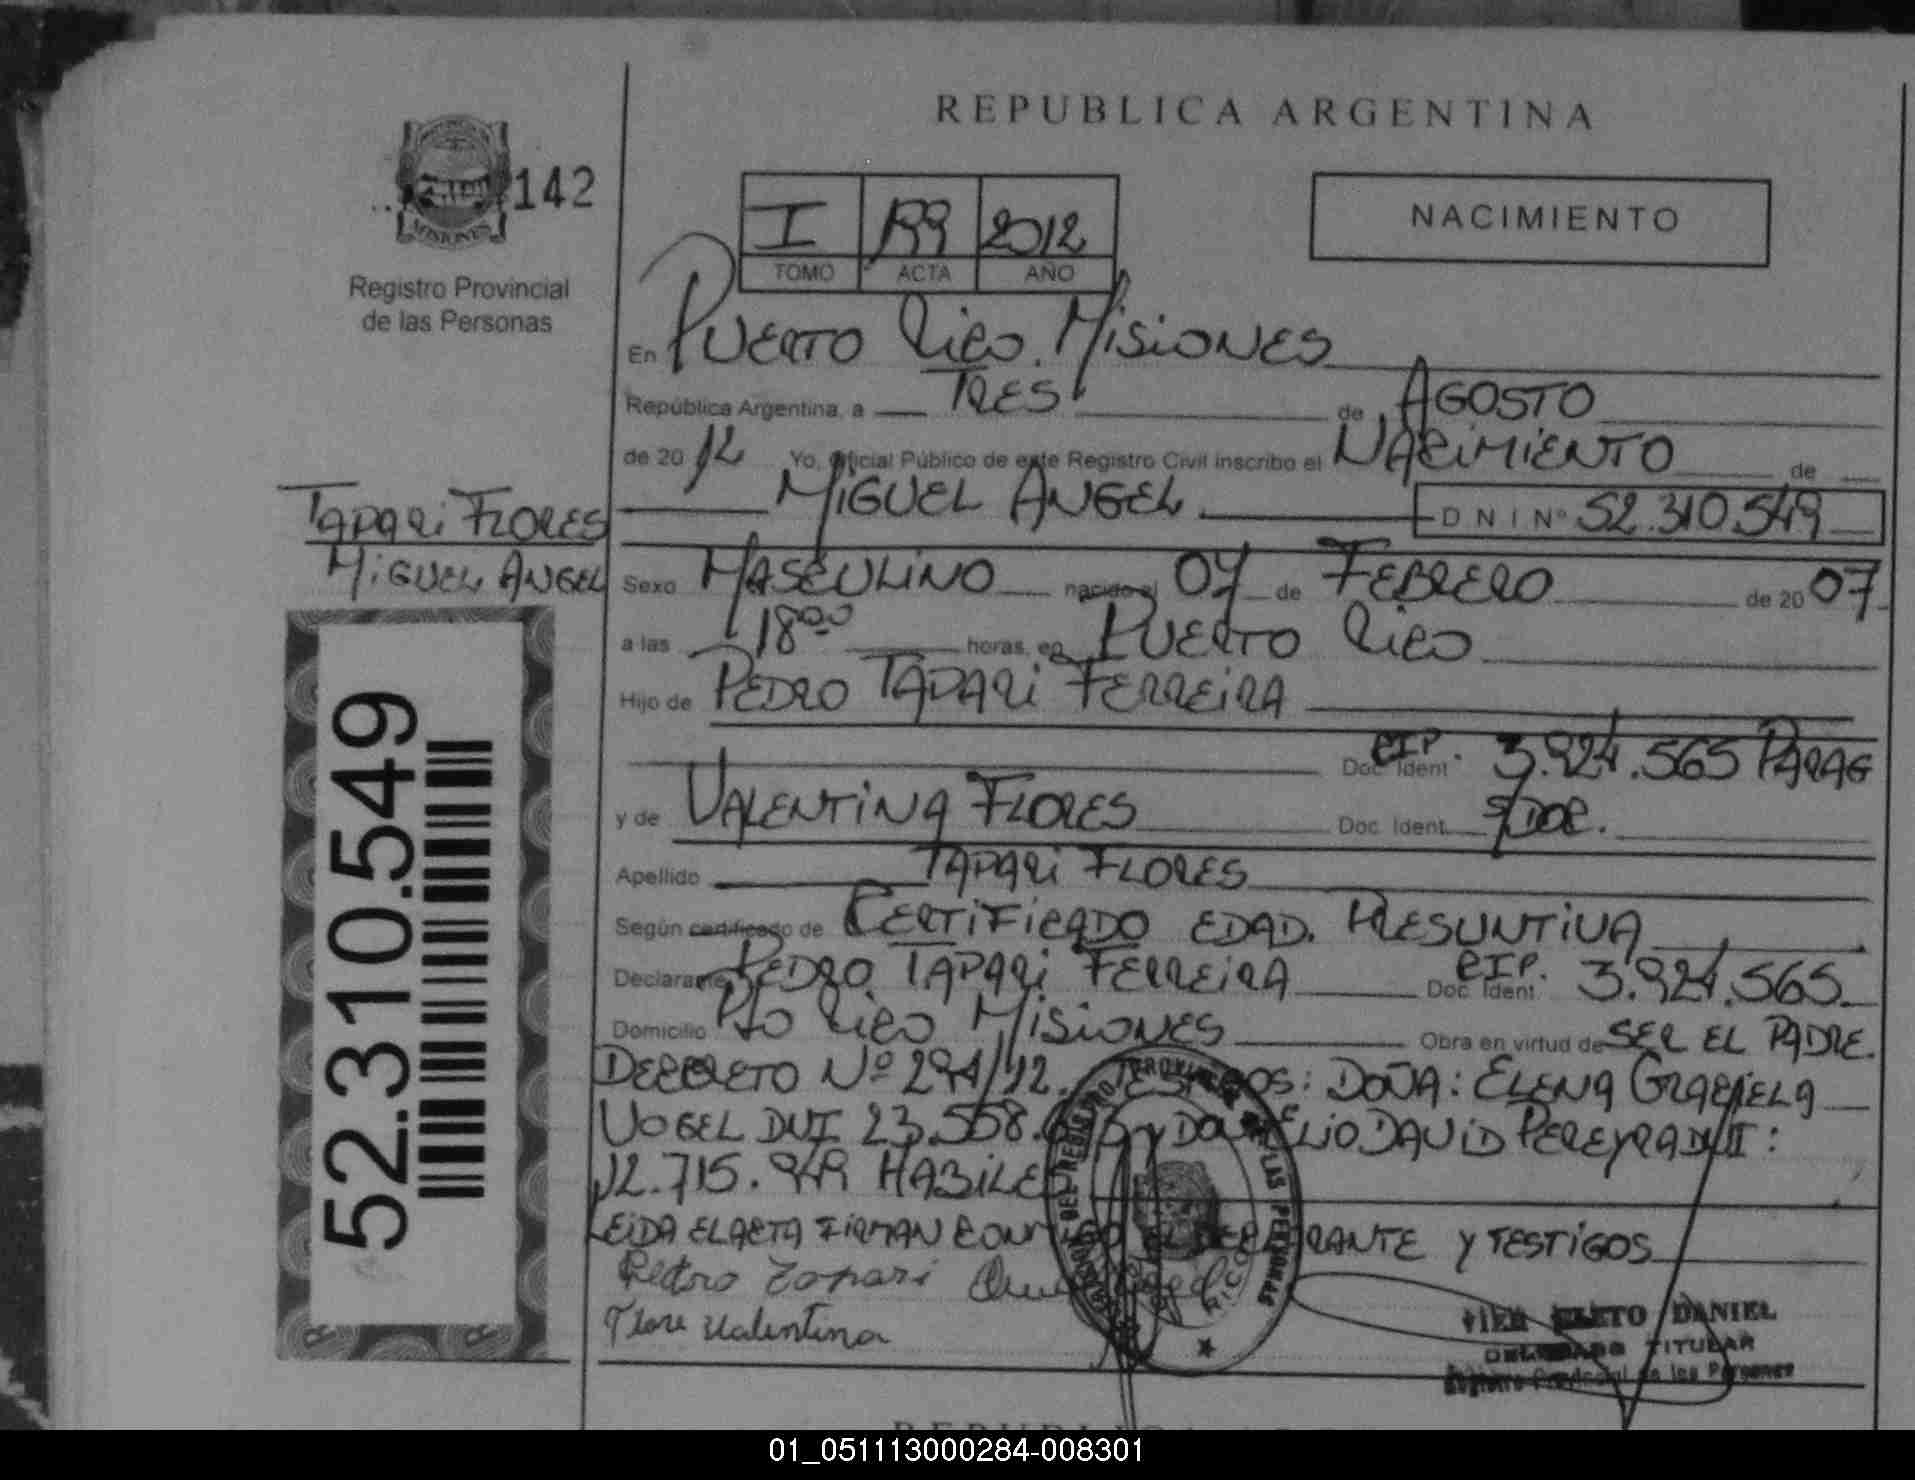 REPUBLICA ARGENTINA
142
MISIONES
Registro Provincial
de las Personas
I 199 2012
TOMO ACTA AÑO
NACIMIENTO
En PUERTO RICO. MISIONES
República Argentina, a TRES de AGOSTO
de 20 12 Yo, Oficial Público de este Registro Civil inscribo el NACIMIENTO de
MIGUEL ANGEL DNI Nº 52.310.549
TAPARI FLORES
MIGUEL ANGEL
Sexo MASCULINO nacido el 07 de FEBRERO de 20 07
a las 18 00 horas, en PUERTO RICO
Hijo de PEDRO TAPARI FERREIRA
Doc. Ident. CIP. 3.924.565 PARAG
y de VALENTINA FLORES Doc. Ident. S/DOC.
Apellido TAPARI FLORES
Según certificado de CERTIFICADO EDAD. PRESUNTIVA
Declarante PEDRO TAPARI FERREIRA Doc. Ident. CIP. 3.924.565
Domicilio PTO RICO MISIONES Obra en virtud de SER EL PADRE.
DECRETO Nº 294/12. TESTIGOS: DOÑA: ELENA GRACIELA
VOGEL DNI 23.558. y DON ELIO DAVID PEREYRA DNI:
12.715.949 HABILES
LEIDA EL ACTA FIRMAN CONMIGO EL DECLARANTE Y TESTIGOS
Pedro Tapari
Flore Valentina
DANIEL
DELEGADO TITULAR
Registro Provincial de las Personas
52.310.549
01_051113000284-008301